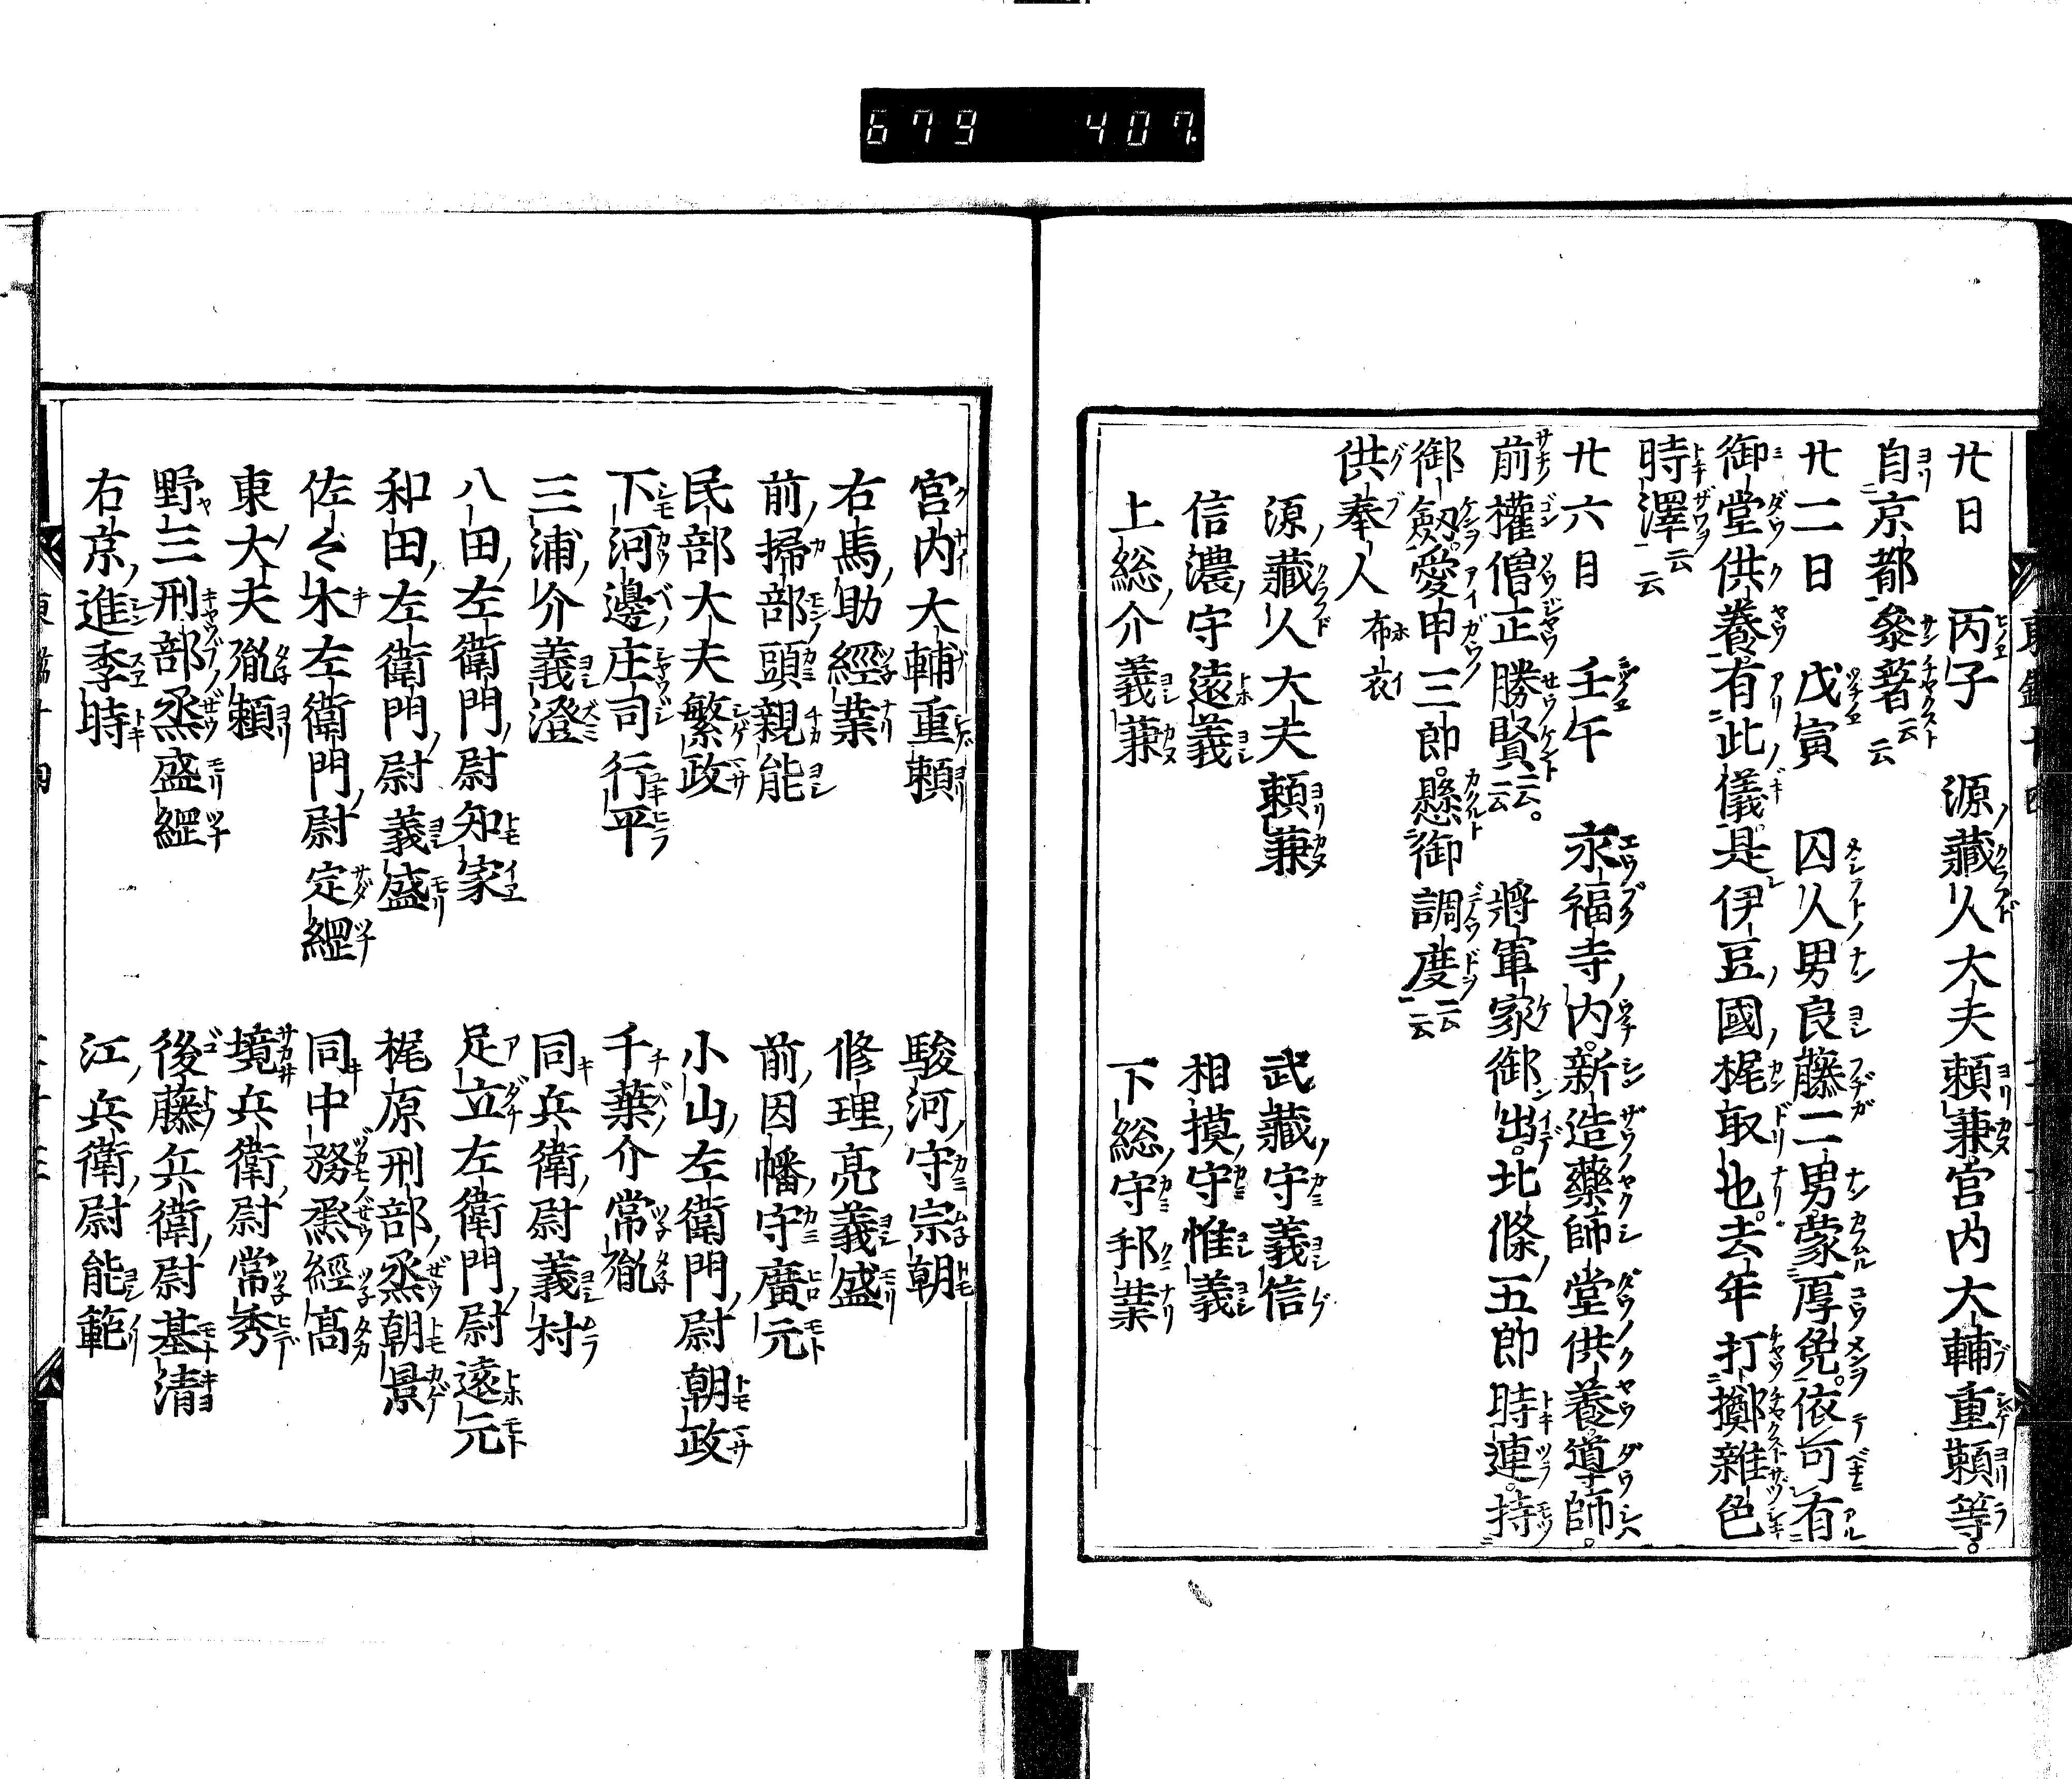 679 407
廿日 丙子 源藏人大夫頼兼宮内大輔重頼等。
自京都參著云云
廿二日 戊寅 囚人男良藤二男蒙厚免。依可有
御堂供養有此儀是伊豆國梶取也去年打擲雜色
時澤云云
廿六日 壬午 永福寺内新造藥師堂供養導師。
前權僧正勝賢云云。 將軍家御出。北條五郎時連。持
御劔。愛甲三郎。懸御調度云云
供奉人 布衣
源藏人大夫頼兼 武藏守義信
信濃守遠義 相摸守惟義
上総介義兼 下総守邦業
宮内大輔重頼 駿河守宗朝
右馬助經業 修理亮義盛
前掃部頭親能 前因幡守廣元
民部大夫繁政 小山左衛門尉朝政
下河邊庄司行平 千葉介常胤
三浦介義澄 同兵衛尉義村
八田左衛門尉知家 足立左衛門尉遠元
和田左衛門尉義盛 梶原刑部烝朝景
佐々木左衛門尉定綱 同中務烝經高
東大夫胤頼 境兵衛尉常秀
野三刑部烝盛綱 後藤兵衛尉基清
右京進季時 江兵衛尉能範